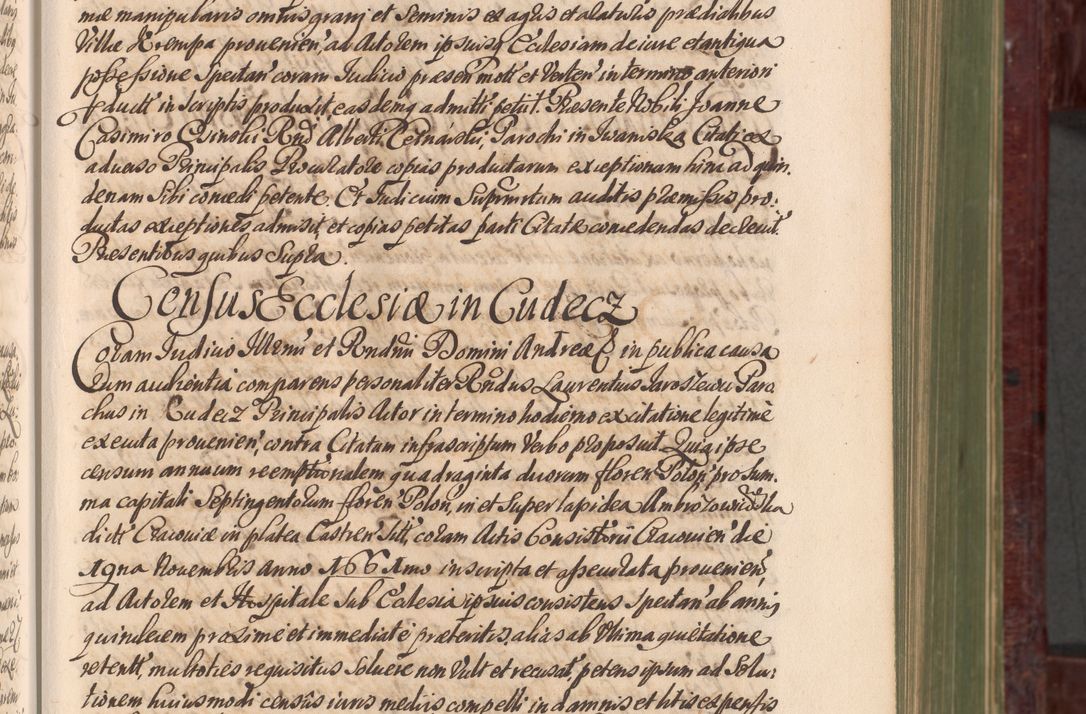 mæ manipularis omnis grani et Seminis ex agris et araturis prædialibus
Villæ Krempa provenien, ad Actorem ipsiusq Ecclesiam de iure et antiqua
possessione Spectan coram Iudicio præsen mott et Verten in termino anteriori
reductt in scriptis produxit easdemq admitti petiit. Præsente Nobili Joanne
Casimiro Rndi Alberti Parochi in Iwaniska Citati ex
adverso Principalis Procuratore copias productarum exceptionam hinc ad quin,
denam Sibi concedi petente. Et Iudicium Supremum auditis præmissis pro:
ductas exceptiones admisit, et copias petitas parti Citatæ concedendas decrevit.
Præsentibus quibus Supra.
Census Ecclesiæ in Cudecz
Coram Iudicio Illmi et Rndmi Domini Andreæ in publica causa
rum audientia comparens personaliter Rndus Laurentius Jaroszewic Paro
chus in Cudecz Principalis Actor in termino hodierno ex citatione legitimè
executa provenien, contra Citatam infrascriptam Verbo proposuit. Quia ipse
censum annuum reemptionalem quadraginta duorum floren Polon, pro Sum.
ma capitali Septingentorum floren Polon, in et Super lapidea Ambrozowiczowska
dictt Cracoviæ in platea Castren sitt, coram Actis Consistorii Cracovien die
19na Novembris Anno 1661mo inscripta et assecurata provenien,
ad Actorem et Hospitale Sub Ecclesia ipsius consistens Spectan ab annis
quindecem proxime et immediatè præteritis, alias ab Ultima quietatione
retentt, multoties requisitus Solvere non Vult et recusat, petens ipsum ad Solu:
tionem huiusmodi censûs iuris mediis compelli in damnis et litis expensis